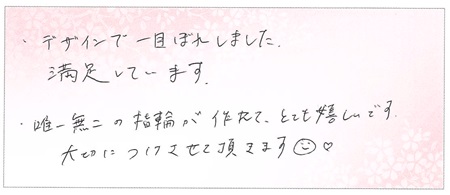 ・デザインで一目ぼれしました.
満足しています.
・唯一無二の指輪が作れて、とても嬉しいです.
大切につけさせて頂きます☺♡